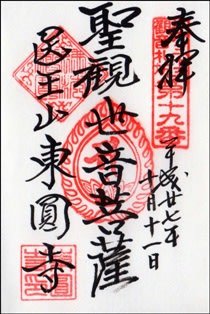 奉拝
第十九番
平成廿七年
十月十一日
聖観世音菩薩
医王山東圓寺